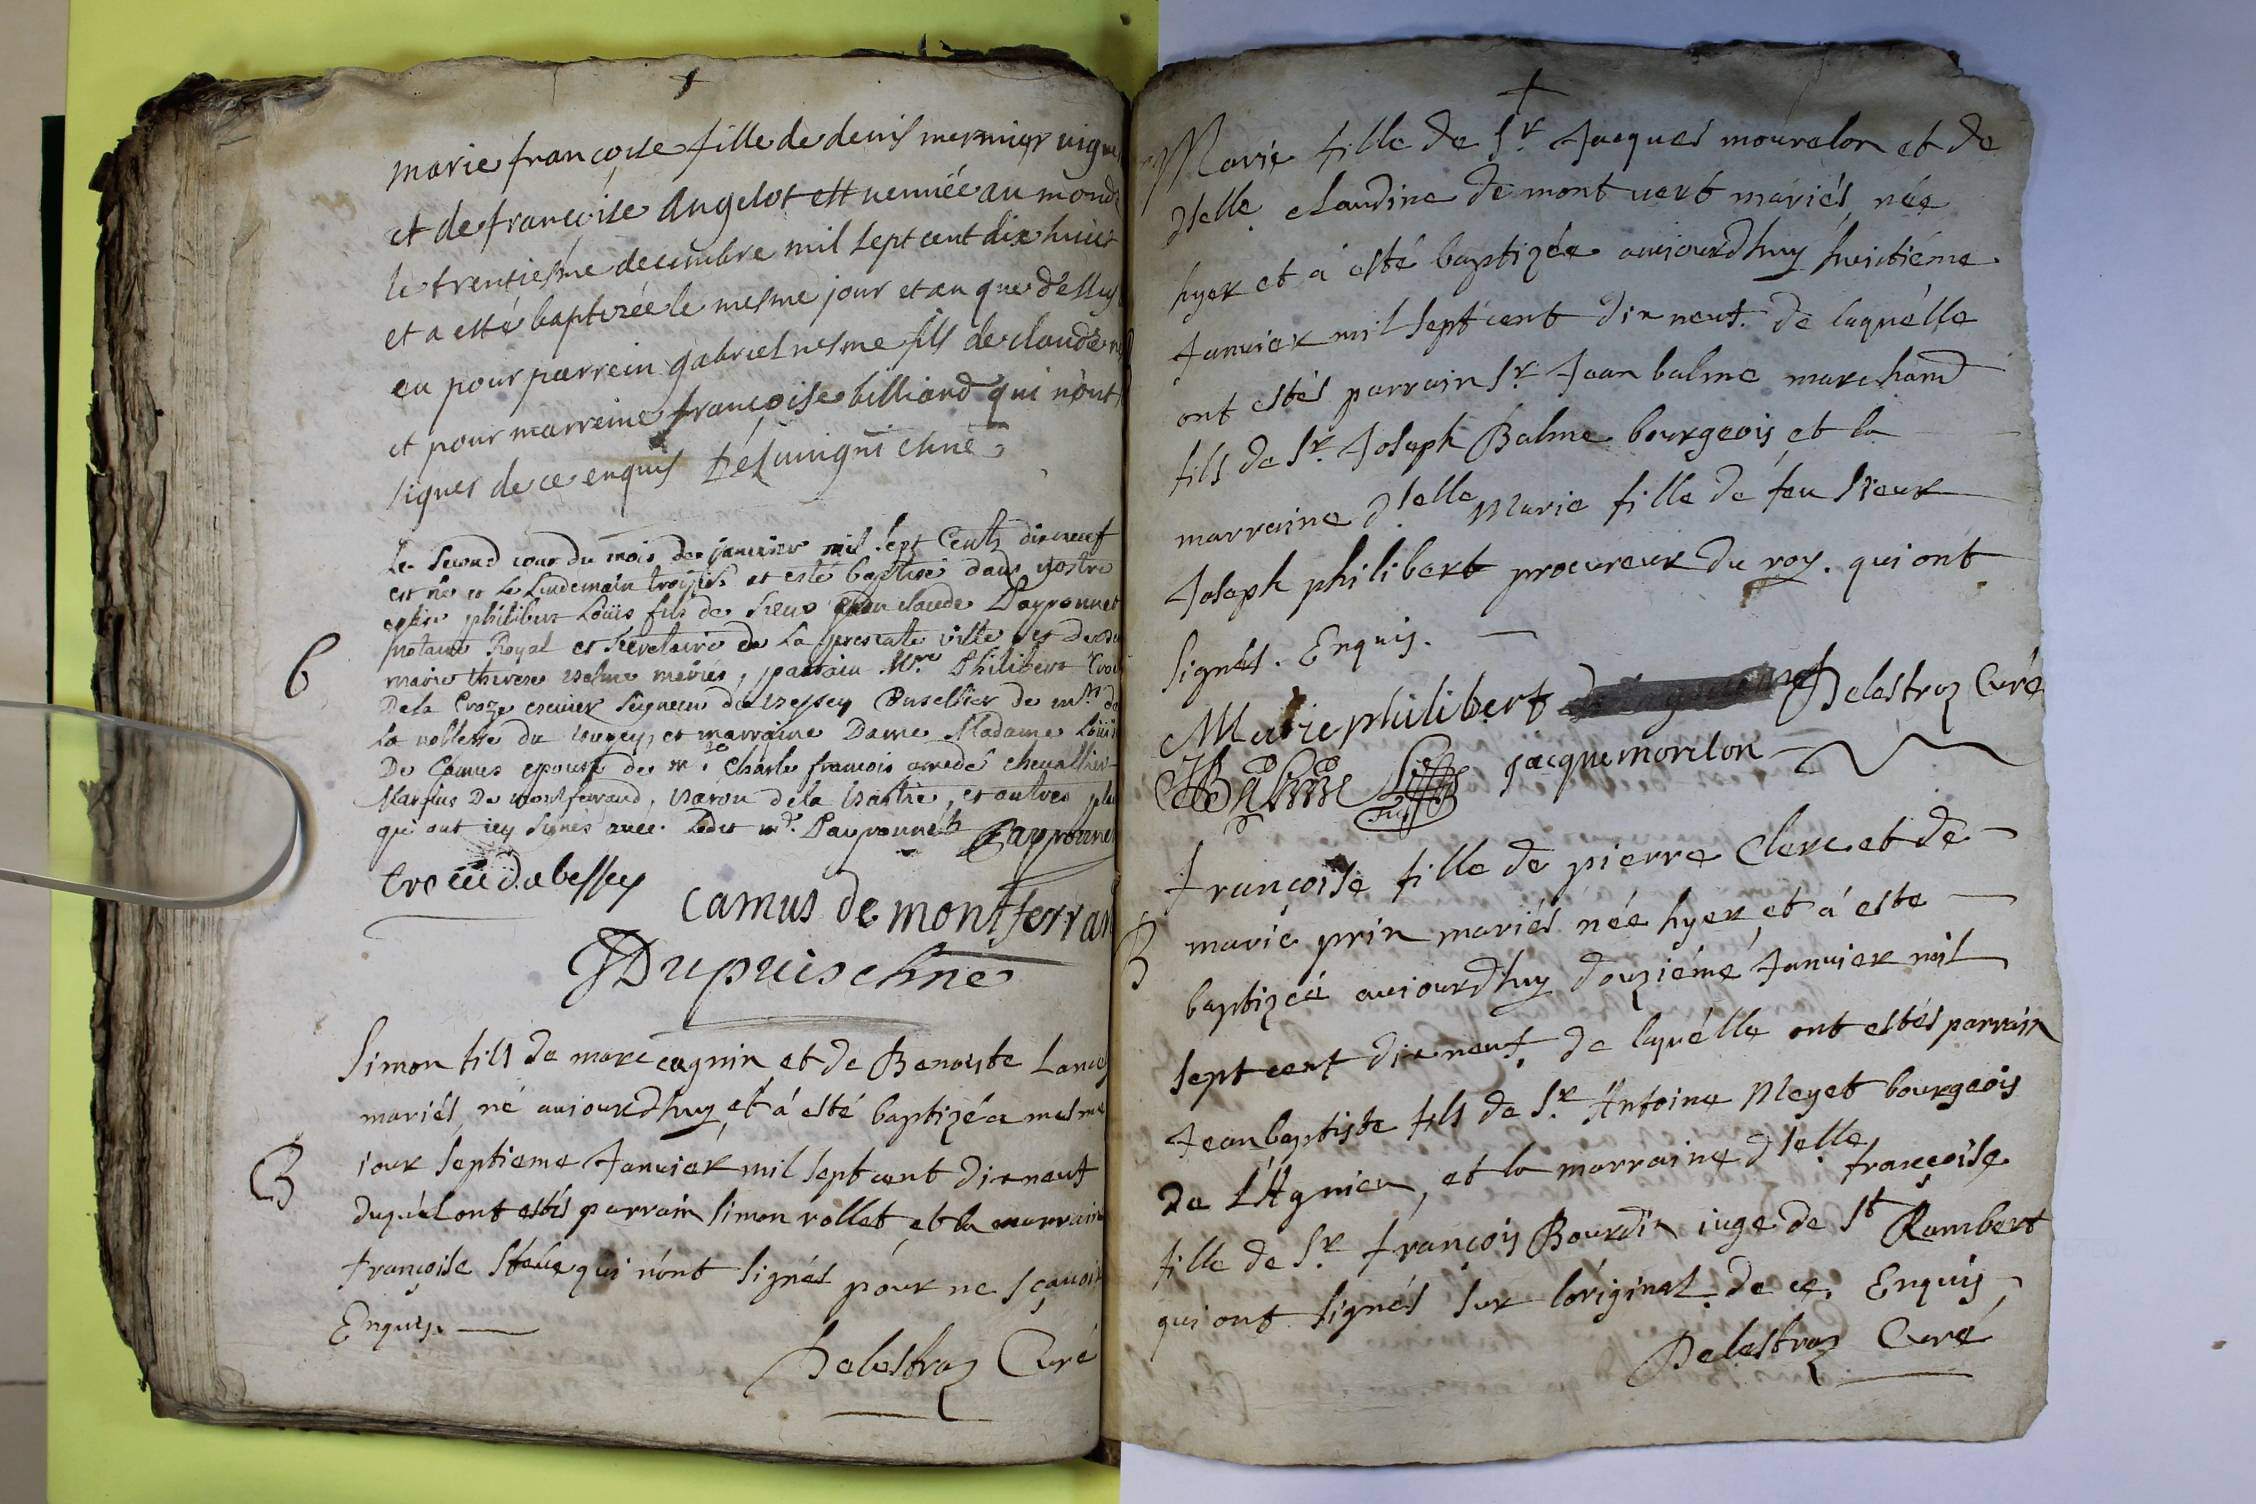 marie françoise fille de denis mermier vigne
et de françoise Angelot est vennüe au mond
le trentiesme decembre mil sept cent dix huict
et a esté baptizée le mesme jour et an que dessus
eu pour parrein gabriel nesme fils de claude
et pour marreine françoise billiand qui n'ont
signer de ce enquis Desuuigni chne
Le second jour du mois de janvier mil sept Cents dixneuf
est né et Le Lendemain troisie et esté baptisé dans nostre
eglise philibert Loüis fils de sieur jean claude Payronnet
notaire Royal et secretaire de La presente ville, et de
marie therese balme mariés, parrain Mre Philibert
De la Croze ecuier seigneur de bessey Conseiller de mrs de
La noblesse du bugey, et marraine Dame Madame Loüise
De Camus epouse de mre Charle françois amedé chevallier
Marquis De montferrand, baron de la bastie, et autres
qui ont icy signés avec Ledit mr. Payronnet Payronnet
B
Croiii d.abessey
Camus de montferran
JDupuis chne
Simon fils de marc cagnin et de Benoiste
mariés, né aujourdhuy, et á esté baptizé a mesme
B
iour septieme Janvier mil sept cent dixneuf
duquel ont estés parrain simon rollet, et la marrain
françoise qui n'ont signés pour ne sçavoir
Enquis.
Delestraz Curé
+
Marie fille de Sr. Jacques mouralon et de
dselle claudine de mont vert mariés, née
hyer et á esté baptizée aujourdhuy huictiéme
Janvier mil sept cent dixneuf. de laquélle
ont estés parrain Sr. Jean balme marchand
fils de Sr. Joseph Balme bourgeois, et la
marraine dselle Marie fille de feu Sieur
Joseph philibert procureur du roy. qui ont
signés. Enquis.
Marie philibert Delestraz Curé
JBalme jacque morelon
françoise fille de pierre Clerc et de
marie prin mariés née hyer, et á este
B
baptizée aujourdhuy douziéme Janvier mil
sept cent dixneuf, de laquélle ont estés parrain
Jean baptiste fils de Sr. Antoine Meyet bourgeois
de L'Agnieu, et la marraine dselle françoise
fille de Sr. françois Bourdin iuge de St Rambert
qui ont signés sur l'original. de ce. Enquis
Delestraz Curé